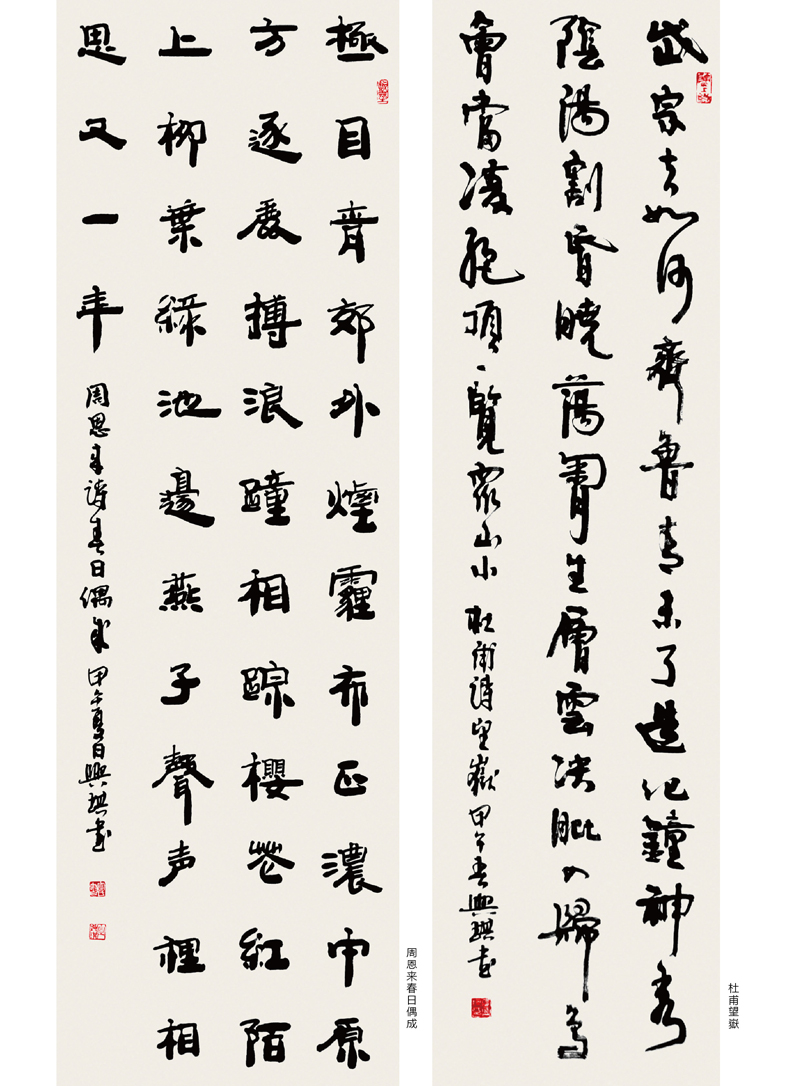 岱宗夫如何齊魯青未了造化鐘神秀
陰陽割昏曉蕩胷生層雲決眦入歸鳥
會當凌絕頂一覽衆山小 杜甫詩望嶽 甲午春興琪書
杜甫望嶽
極目青郊外煙霾布正濃中原
方逐鹿搏浪踵相踪櫻花紅陌
上柳葉綠池邊燕子聲声裡相
思又一年 周恩来詩春日偶成 甲午夏日興琪書
周恩来春日偶成